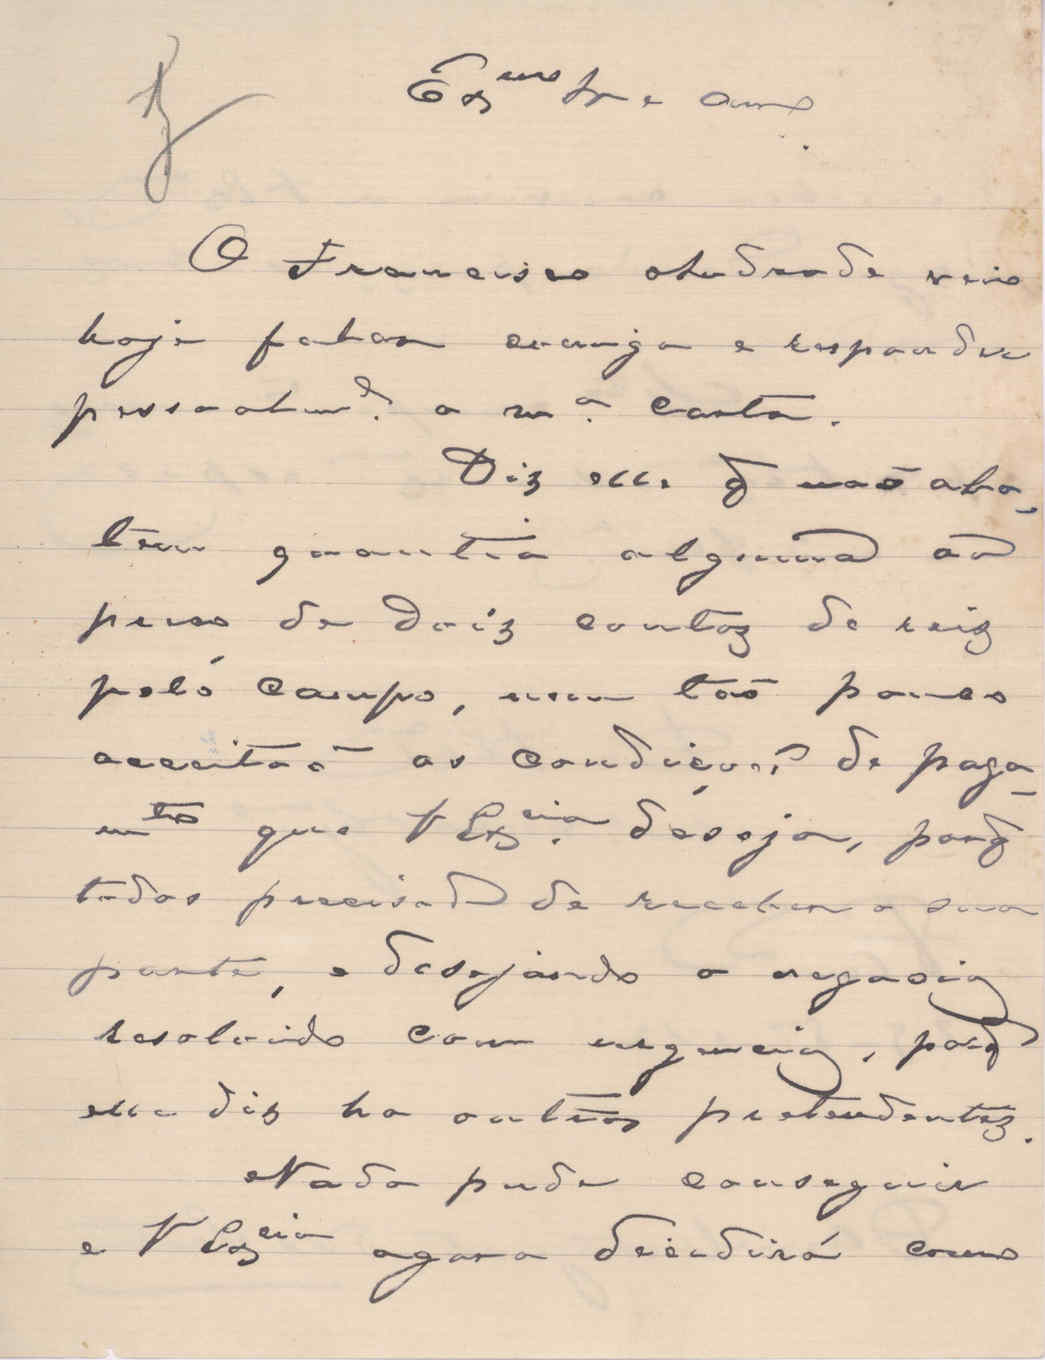 Ex.mo Sr e Amo.
O Francisco Andrade veio
hoje fallar comigo e responder
pessoalme. a m.a carta.
Diz elle q não aba-
tem quantia alguma ao
preso de Dois contos de reis
peló campo, nem tão pouco
acceitão as condições de paga-
mtos que V Ex.cia deseja, porq
todos precisão de receber a sua
parte, e desejando o negocio
resolvido com urgencia, porq
elle diz ha outros pretendentes.
Nada pude conseguir
e V Ex.cia agora decidirá como